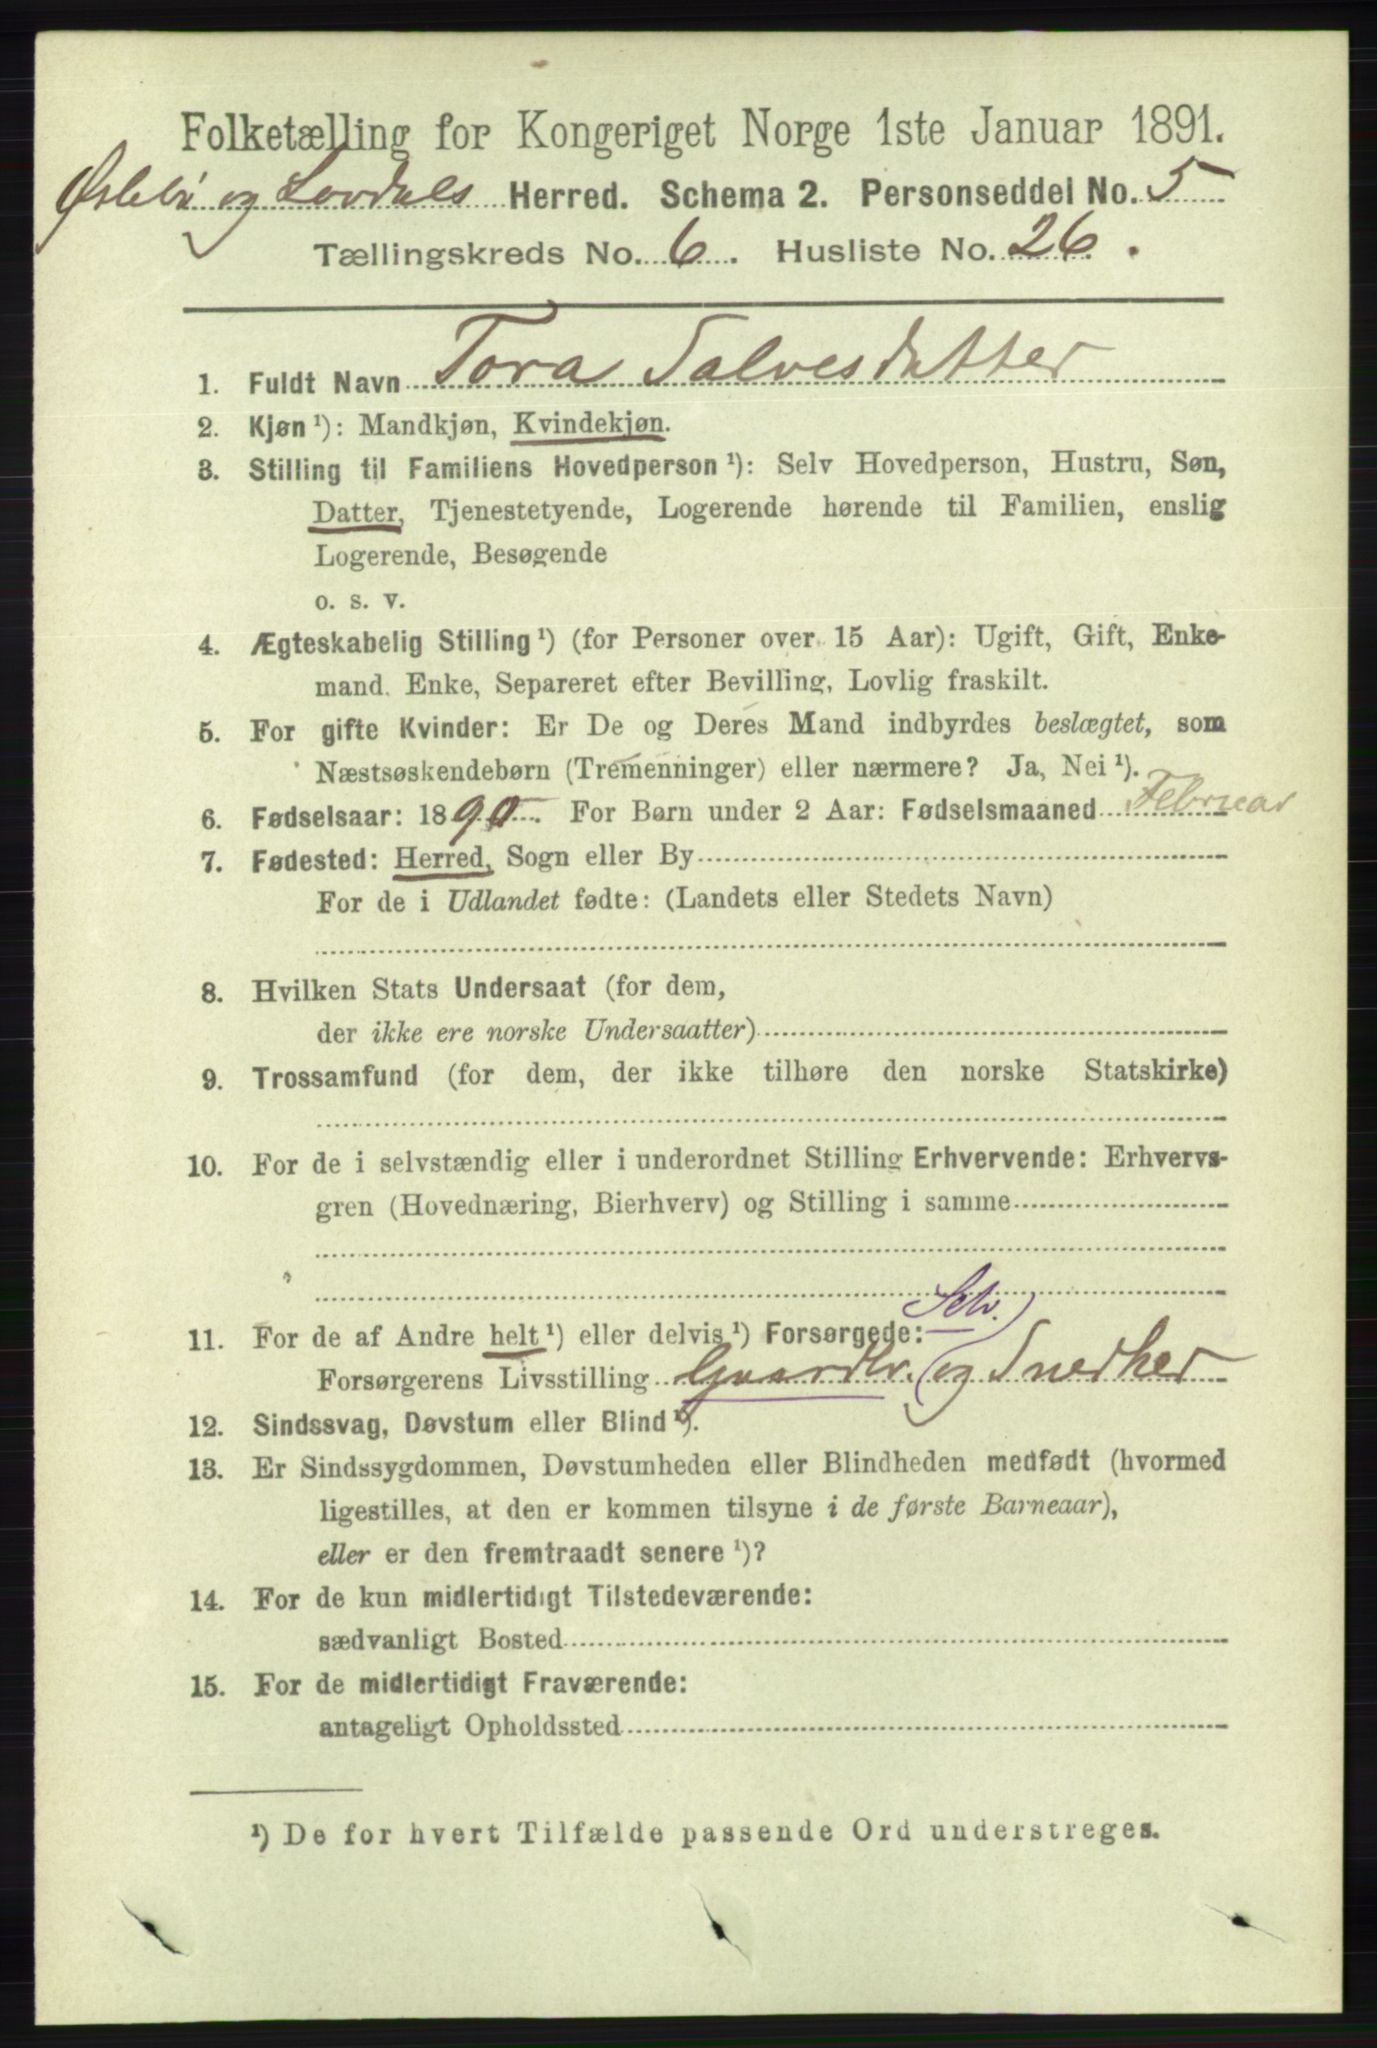 Folketælling for Kongeriget Norge 1ste Januar 1891.
Øslebø og Lovdals Herred. Schema 2. Personseddel No. 5
Tællingskreds No. 6. Husliste No. 26.
1. Fuldt Navn Tora Salvesdatter
2. Kjøn ¹): Mandkjøn, Kvindekjøn.
3. Stilling til Familiens Hovedperson ¹): Selv Hovedperson, Hustru, Søn,
Datter, Tjenestetyende, Logerende hørende til Familien, enslig
Logerende, Besøgende
o. s. v.
4. Ægteskabelig Stilling ¹) (for Personer over 15 Aar): Ugift, Gift, Enke-
mand, Enke, Separeret efter Bevilling, Lovlig fraskilt.
5. For gifte Kvinder: Er De og Deres Mand indbyrdes beslægtet, som
Næstsøskendebørn (Tremenninger) eller nærmere? Ja, Nei ¹).
6. Fødselsaar: 1890. For Børn under 2 Aar: Fødselsmaaned Februar
7. Fødested: Herred, Sogn eller By
For de i Udlandet fødte: (Landets eller Stedets Navn)
8. Hvilken Stats Undersaat (for dem,
der ikke ere norske Undersaatter)
9. Trossamfund (for dem, der ikke tilhøre den norske Statskirke)
10. For de i selvstændig eller i underordnet Stilling Erhvervende: Erhvervs-
gren (Hovednæring, Bierhverv) og Stilling i samme
Selv.
11. For de af Andre helt ¹) eller delvis ¹) Forsørgede:
Forsørgerens Livsstilling Gaardbr. og Snedker
12. Sindssvag, Døvstum eller Blind ¹).
13. Er Sindssygdommen, Døvstumheden eller Blindheden medfødt (hvormed
ligestilles, at den er kommen tilsyne i de første Barneaar),
eller er den fremtraadt senere ¹)?
14. For de kun midlertidigt Tilstedeværende:
sædvanligt Bosted
15. For de midlertidigt Fraværende:
antageligt Opholdssted
¹) De for hvert Tilfælde passende Ord understreges.